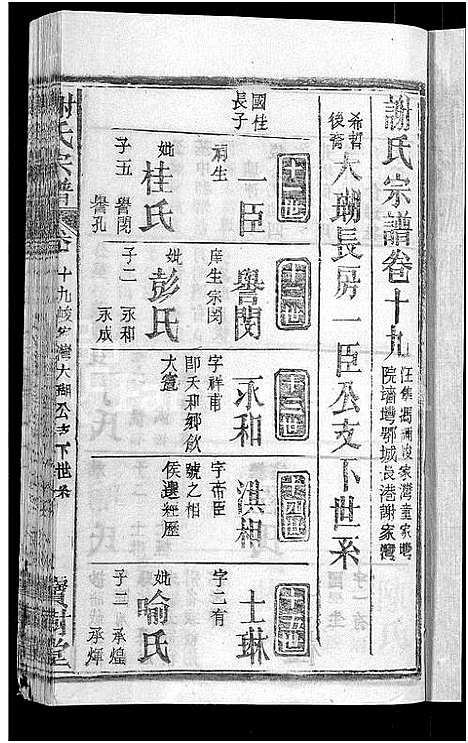 謝氏宗譜卷十九
院 墻塆鄂城長港謝家灣
希哲後裔
大瑚長房一臣公支下世系
十一世
國柱長子
一臣
祠生
妣桂氏
子五 譽閔 譽孔
十二世
譽閔
庠生宗閔
妣彭氏
子二 永和 永成
十三世
永和
字祥甫
即天和鄉飲大賓
十四世
淇相
字帝臣
號之相
候選經歷
十五世
士琳
字二有
妣喻氏
子二 承煌 承煇
謝氏宗譜 卷十九 大瑚公支下世系
寶樹堂